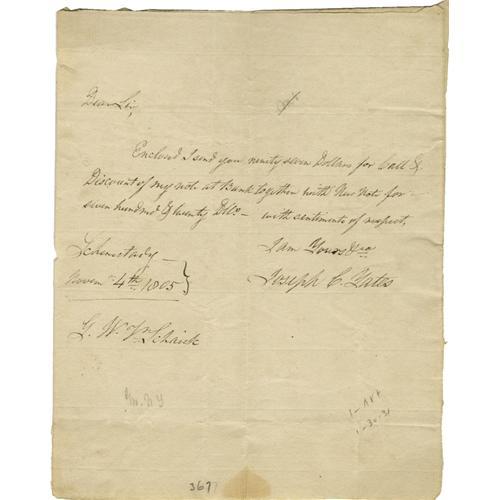 Dear Sir,
Enclosed I send you ninety seven Dollars for Call &
Discount of my note at Bank together with New Note for
seven hundred & twenty Dlls — with sentiments of respect,
I am Yours &ca
Schenectady
Novem 4th 1805
Joseph C. Yates
G. W. Vn Schaick
N.Y
3677